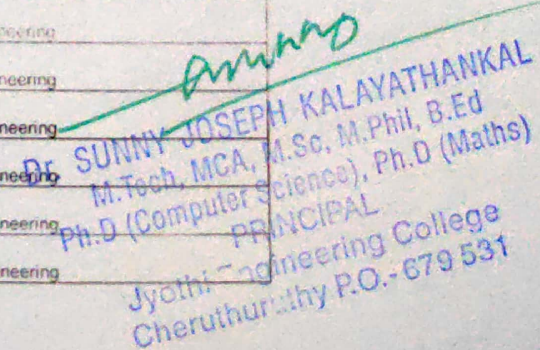 neering
neering
neering
neering
neering
neering
Dr. SUNNY JOSEPH KALAYATHANKAL
M.Tech, MCA, M.Sc, M.Phil, B.Ed
Ph.D (Computer Science), Ph.D (Maths)
PRINCIPAL
Jyothi Engineering College
Cheruthuruthy P.O.- 679 531